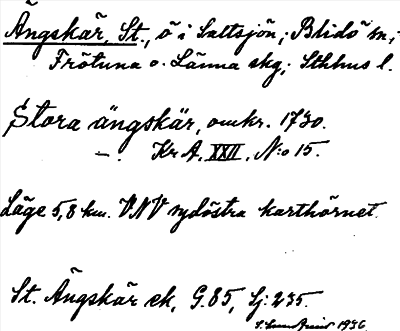 Ängskär, St., ö i Saltsjön; Blidö sn;
Frötuna o. Länna skg; Sthlms l.
Stora ängskär, omkr. 1730.
—. Kr A, XXII, N:o 15.
Läge 5,8 km. VNV sydöstra karthörnet.
St. Ängskär ek, G.85, Lj: 235.
1936